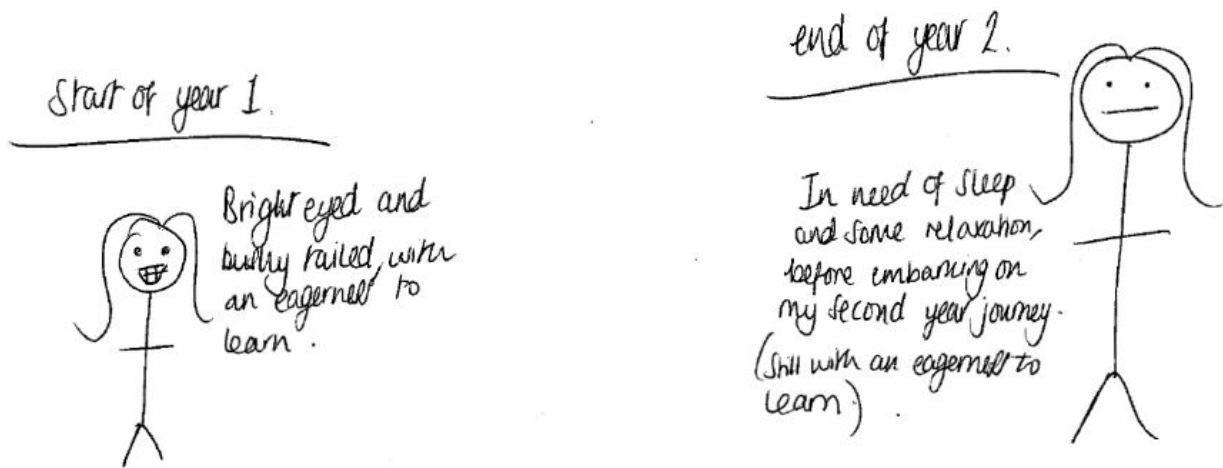 Start of year 1.
Bright eyed and
bushy tailed, with
an eagerness to
learn.
end of year 2.
In need of sleep
and some relaxation,
before embarking on
my second year journey.
(still with an eagerness to
learn).